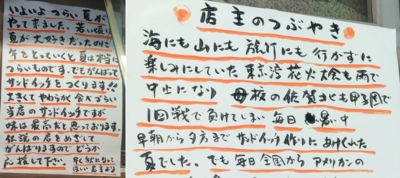 いよいよつらい夏が
やって来ました。若い頃は
夏が大好きだったのに
年をとっていくと夏は本当に
つらいものです。でもがんばって
サンドイッチをつくります!!
大きくてやうが食べづらい
当店のサンドイッチですが
味は最高だと思っております。
伝説の店をめざして
がんばりますのでどうか
応援して下さい。
店主のつぶやき
海にも山にも旅行にも行かずに
楽しみにしていた東京湾花火大会も雨で
中止になり 母校の佐賀北も甲子園で
1回戦で負けてしまい 毎日暑い中
早朝から夕方までサンドイッチ作りにあけくれた
夏でした。でも毎日全国からアメリカンの